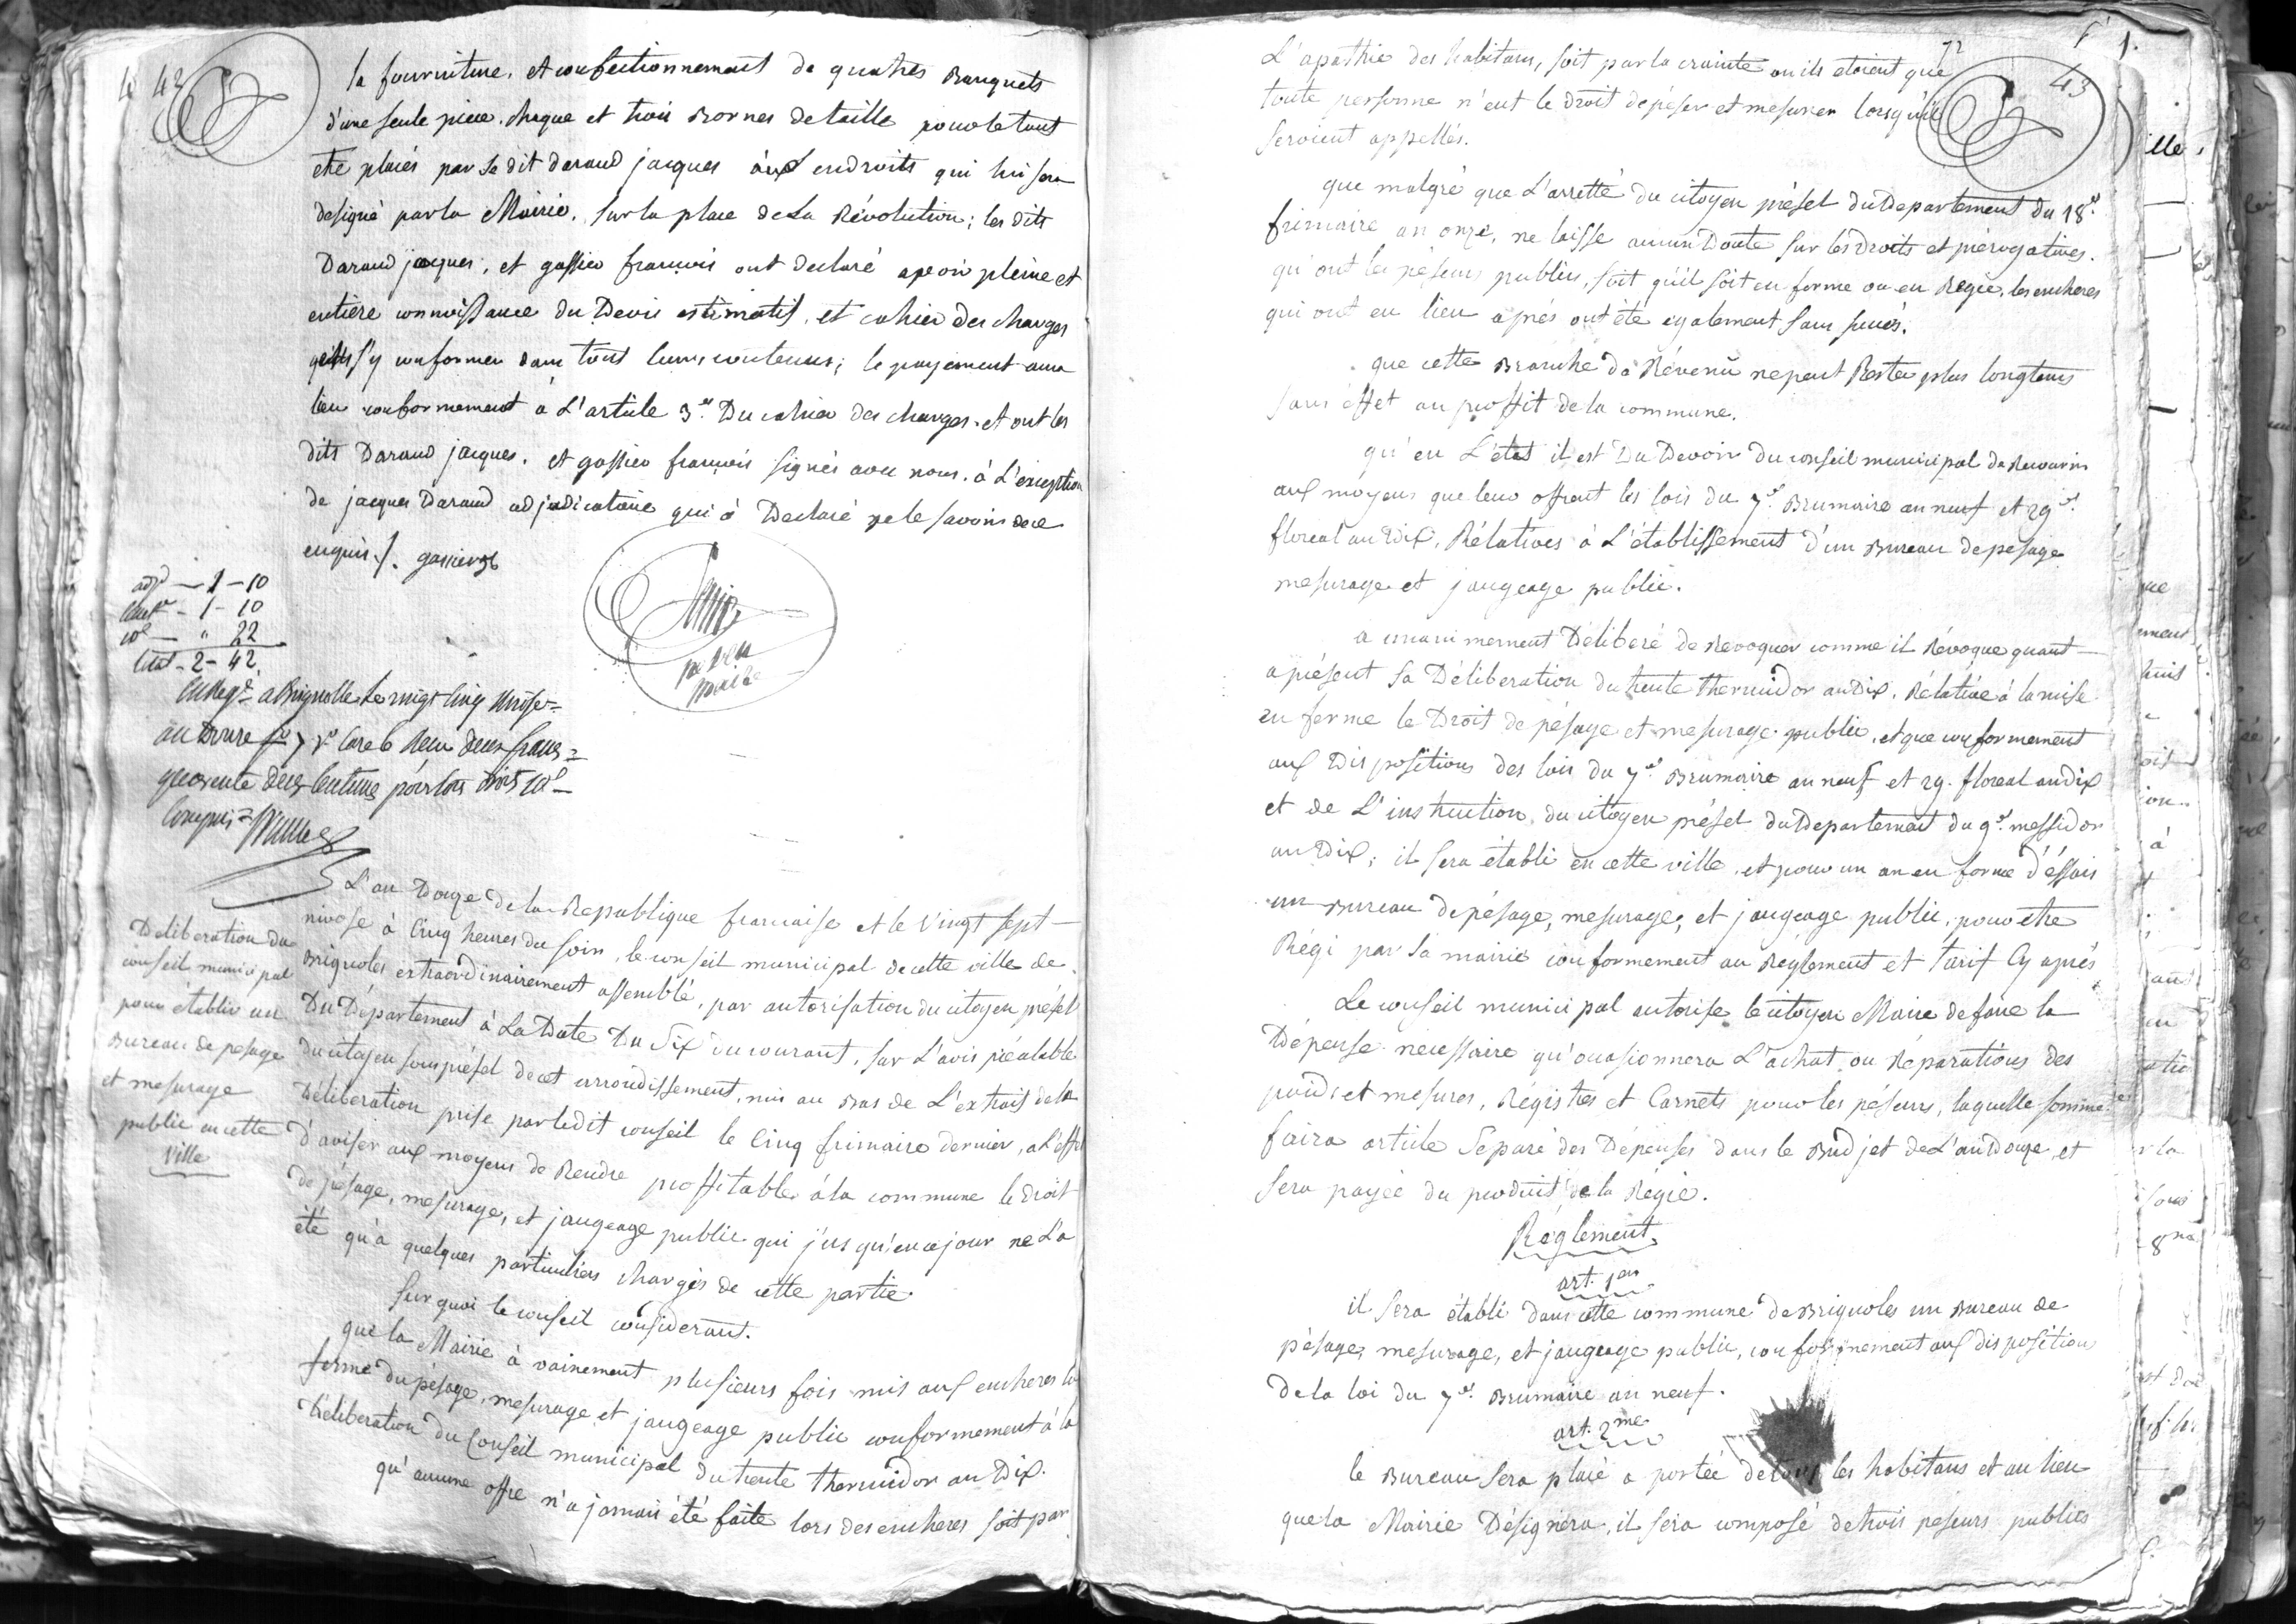 42
la fourniture, et confectionnement de quatres Banquets
d'une seule piece chaque et trois Bornes de taille pour le tout
etre placés par le dit Daraud jacques aux endroits qui lui sera
designé par la Mairie, sur la place de la Révolution; les dits
Daraud jacques, et gassier françois ont declaré avoir pleine et
entiere connoissance du Devis estimatif, et cahier des charges
s'y conformer dans tout leurs contenus; le payement aura
lieu conformement à L'article 3e. Du cahier des charges. et ont les
dits Daraud jacques, et gassier françois signés avec nous, à L'exception
de jacques Daraud adjudicataire qui à Declaré ne le savoir de ce
enquis ./. gassier
adjon — 1 - 10
1 - 10
10e — " 22
total - 2 - 42
Enregé a Brignolle le vingt cinq nivose
an Douze Reçu deux francs
quarante deux centimes pour les droits 10e
Compris
maire
L'an Douze de la Republique francaise et le Vingt sept
nivose à Cinq heures du soir, le conseil municipal de cette ville de
Brignoles extraordinairement assemblé, par autorisation du citoyen préfet
Du Département à La Date Du Six du courant, sur L'avis préalable
du citoyen souspréfet de cet arrondissement, mis au Bas de L'extrait de la
Déliberation prise par ledit conseil le Cinq frimaire dernier, a L'effet
d'aviser aux moyens de Rendre proffitable à la commune le droit
de pésage, mesurage, et jaugeage public qui j'usqu'en ce jour ne L'a
été qu'à quelques particuliers chargés de cette partie.
Deliberation du
conseil municipal
pour établir un
Bureau de pesage
et mesurage
public en cette
Ville
Sur quoi le conseil considerant.
que la Mairie à vainement plusieurs fois mis aux encheres la
ferme du pésage, mesurage et jaugeage public conformement à la
Déliberation du Conseil municipal du trente thermidor an Dix.
qu'aucune offre n'a jamais été faite lors des encheres soit par
72
43
L'apathie des habitans, soit par la crainte ou ils etoient que
toute personne n'eut le droit de péser et mesurer lorsqu'ils
seroient appellés.
que malgré que L'arretté du citoyen préfet du Departement du 18e.
frimaire an onze, ne laisse aucun Doute sur les Droits et prérogatives
qu'ont les péseurs publics, soit qu'il soit en ferme ou en Régie, les encheres
qui ont eu lieu aprés ont été egalement sans succés.
que cette Branche de Révenû ne peut Rester plus longtems
sans éffet au proffit de la commune.
qu'en L'état il est Du Devoir du conseil municipal de Recourir
aux moyens que leur offrent les lois du 7e. Brumaire an neuf et 29e.
floreal an Dix, Rélatives à L'établissement d'un Bureau de pesage
mesurage et jaugeage public.
a unanimement Déliberé de Revoquer comme il Révoque quant
a présent sa Déliberation du trente thermidor an Dix, Rélative à la mise
en ferme le Droit de pésage et mesurage public, et que conformement
aux Dispositions des lois du 7e. Brumaire an neuf et 29. floreal an dix
et de L'instruction, du citoyen préfet du Departement du 9e. messidor
an Dix; il sera établi en cette ville, et pour un an en forme d'éssais
un Bureau de pésage, mesurage, et jaugeage public, pour etre
Régi par la mairie conformement au Réglement et Tarif Cy aprés
Le conseil municipal autorise le citoyen Maire de faire la
Dépense necessaire qu'ocasionnera L'achat ou Réparations des
poids et mesures, Régistres et Carnets pour les péseurs, laquelle somme
faira article Separé des Dépenses dans le Budjet de L'an Douze, et
sera payée du produit de la Régie.
Réglement
art. 1er
il sera établi dans cette commune de Brignoles un Bureau de
pésage, mesurage, et jaugeage public, conformement aux disposition
de la loi du 7e. Brumaire an neuf.
art. 2me
le Bureau sera placé a portée de tous les habitans et au lieu
que la Mairie Désignera, il sera composé de trois peseurs publics